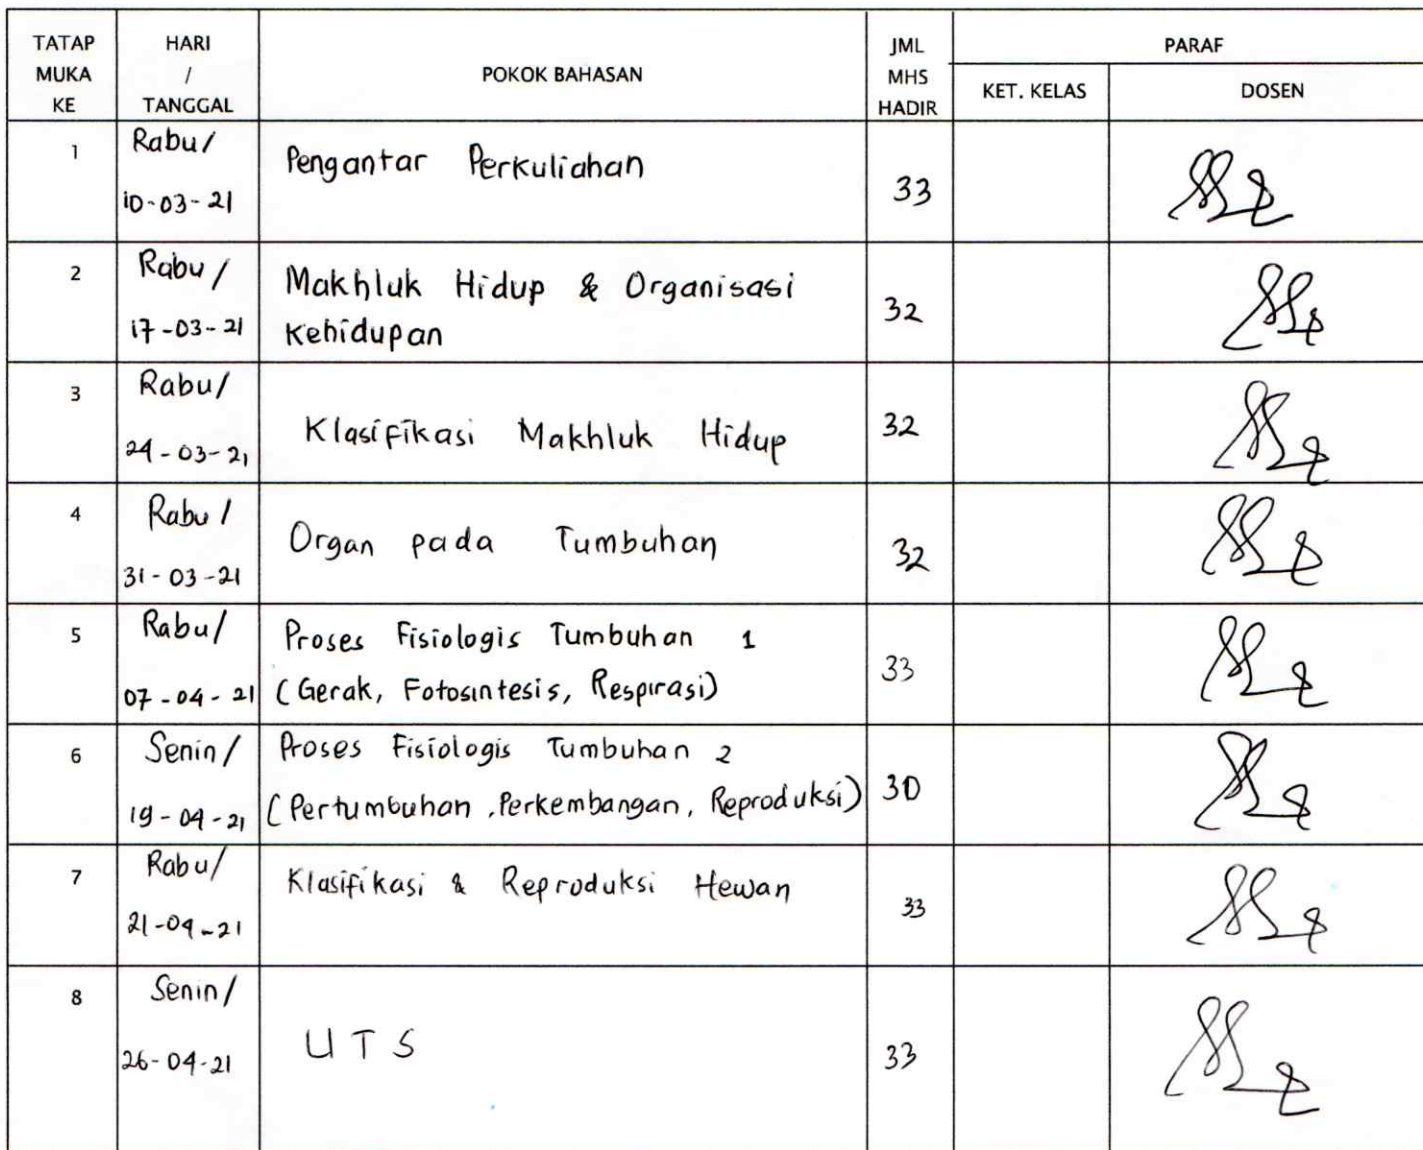 TATAP MUKA KE
HARI / TANGGAL
POKOK BAHASAN
JML MHS HADIR
PARAF
KET. KELAS
DOSEN
1
Rabu/
10-03-21
Pengantar Perkuliahan
33
2
Rabu/
17-03-21
Makhluk Hidup & Organisasi
Kehidupan
32
3
Rabu/
24-03-21
Klasifikasi Makhluk Hidup
32
4
Rabu/
31-03-21
Organ pada Tumbuhan
32
5
Rabu/
07-04-21
Proses Fisiologis Tumbuhan 1
(Gerak, Fotosintesis, Respirasi)
33
6
Senin/
19-04-21
Proses Fisiologis Tumbuhan 2
(Pertumbuhan, Perkembangan, Reproduksi)
30
7
Rabu/
21-04-21
Klasifikasi & Reproduksi Hewan
33
8
Senin/
26-04-21
UTS
33